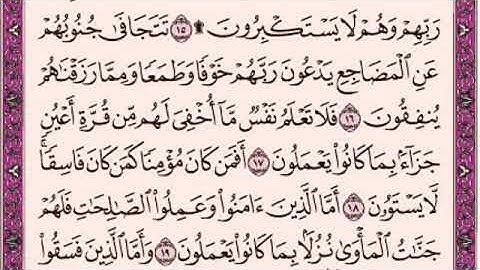 رَبِّهِمْ وَهُمْ لَا يَسْتَكْبِرُونَ ۩ ١٥ تَتَجَافَىٰ جُنُوبُهُمْ
عَنِ ٱلْمَضَاجِعِ يَدْعُونَ رَبَّهُمْ خَوْفًا وَطَمَعًا وَمِمَّا رَزَقْنَٰهُمْ
يُنفِقُونَ ١٦ فَلَا تَعْلَمُ نَفْسٌ مَّآ أُخْفِىَ لَهُم مِّن قُرَّةِ أَعْيُنٍ
جَزَآءًۢ بِمَا كَانُوا۟ يَعْمَلُونَ ١٧ أَفَمَن كَانَ مُؤْمِنًا كَمَن كَانَ فَاسِقًا ۚ
لَّا يَسْتَوُۥنَ ١٨ أَمَّا ٱلَّذِينَ ءَامَنُوا۟ وَعَمِلُوا۟ ٱلصَّٰلِحَٰتِ فَلَهُمْ
جَنَّٰتُ ٱلْمَأْوَىٰ نُزُلًۢا بِمَا كَانُوا۟ يَعْمَلُونَ ١٩ وَأَمَّا ٱلَّذِينَ فَسَقُوا۟